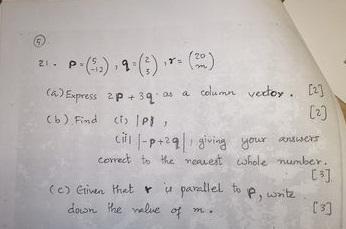 ⑤
21. P = (5 -12) , q = (2 3) , r = (20 m)
(a) Express 2P + 3q as a column vector. [2]
(b) Find (i) |P| , [2]
(ii) |-P+2q| , giving your answers
correct to the nearest whole number.
[3]
(c) Given that r is parallel to P, write
down the value of m. [3]